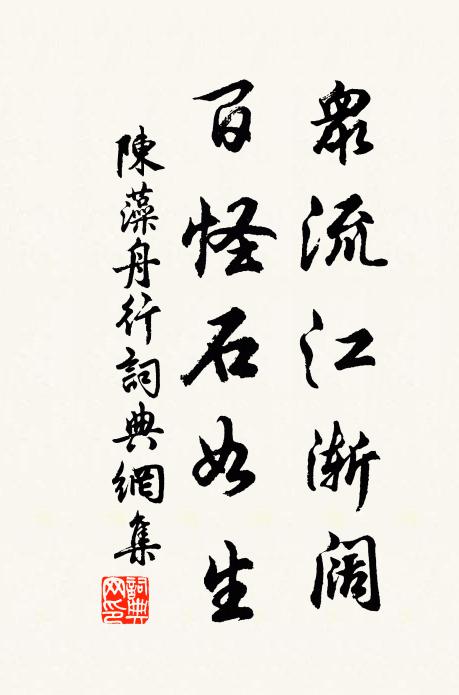 眾流江漸闊
百怪石如生
陳藻舟行詞典網集
詞典網印